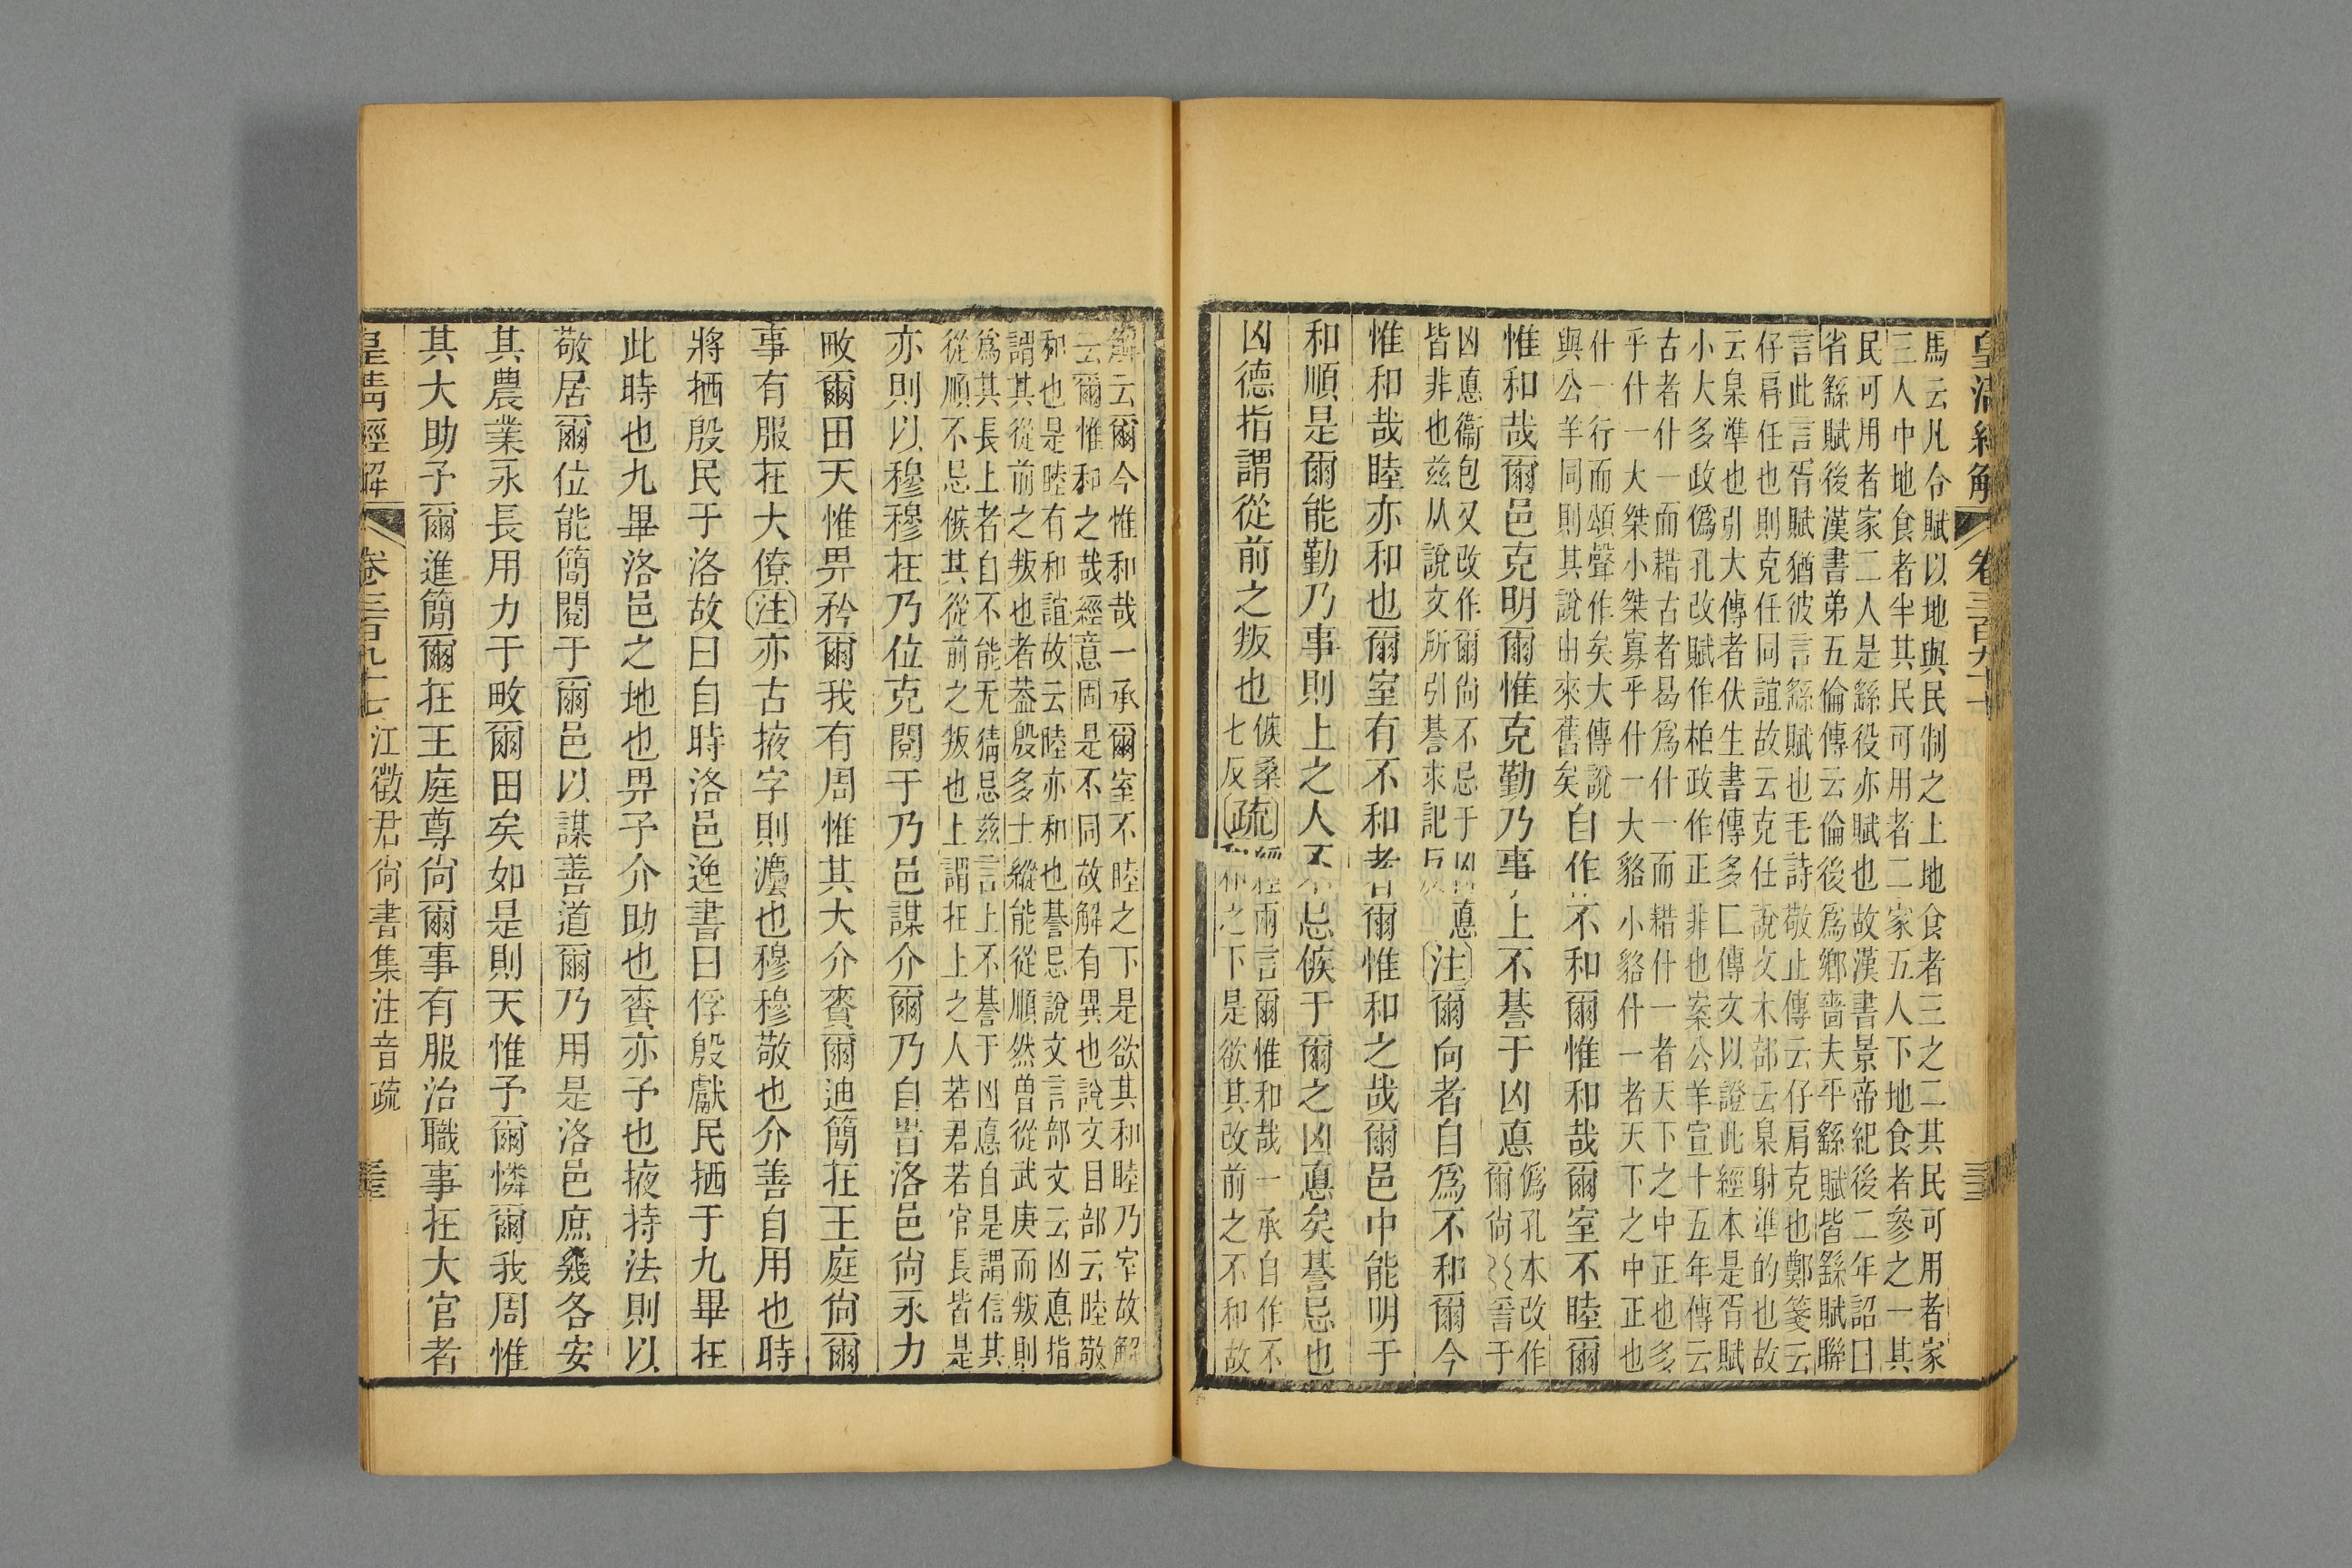 皇清經解 卷三百九十七
馬云凡令賦以地與民制之上地食者三之二其民可用者家
三人中地食者半其民可用者二家五人下地食者參之一其
民可用者家二人是繇役亦賦也故漢書景帝紀後二年詔曰
省繇賦後漢書弟五倫傳云倫後爲鄉嗇夫平繇賦皆繇賦聯
言此言胥賦猶彼言繇賦也毛詩敬止傳云仔肩克也鄭箋云
仔肩任也則克任同誼故云克任說文木部云臬射準的也故
云臬準也引大傳者伏生書傳多匚傳文以證此經本是胥賦
小大多政僞孔改賦作柏政作正非也案公羊宣十五年傳云
古者什一而耤古者曷爲什一而耤什一者天下之中正也多
乎什一大桀小桀寡乎什一大貉小貉什一者天下之中正也
什一行而頌聲作矣大傳說
與公羊同則其說由來舊矣
自作不和爾惟和哉爾室不睦爾
惟和哉爾邑克明爾惟克勤乃事上不諅于凶悳
僞孔本改作
爾尙
諅于
凶悳衞包又改作爾尙不忌于凶悳
皆非也兹从說文所引諅求記反
注爾向者自爲不和爾今
惟和哉睦亦和也爾室有不和者爾惟和之哉爾邑中能明于
和順是爾能勤乃事則上之人不忌㑵于爾之凶悳矣諅忌也
凶德指謂從前之叛也
㑵桑
七反
疏
經兩言爾惟和哉一承自作不
和之下是欲其改前之不和故
解云爾今惟和哉一承爾室不睦之下是欲其和睦乃室故解
云爾惟和之哉經意固是不同故解有異也說文目部云睦敬
和也是睦有和誼故云睦亦和也諅忌說文言部文云凶悳指
謂其從前之叛也者葢殷多士縱能從順然曾從武庚而叛則
爲其長上者自不能无猜忌兹言上不諅于凶悳自是謂信其
從順不忌㑵其從前之叛也上謂在上之人若君若官長皆是
亦則以穆穆在乃位克閱于乃邑謀介爾乃自旹洛邑尙永力
畋爾田天惟畀矜爾我有周惟其大介賚爾迪簡在王庭尙爾
事有服在大僚注亦古掖字則灋也穆穆敬也介善自用也時
將㢴殷民于洛故曰自時洛邑逸書曰俘殷獻民㢴于九畢在
此時也九畢洛邑之地也畀予介助也賚亦予也掖持法則以
敬居爾位能簡閱于爾邑以謀善道爾乃用是洛邑庶幾各安
其農業永長用力于畋爾田矣如是則天惟予爾憐爾我周惟
其大助予爾進簡爾在王庭尊尙爾事有服治職事在大官者
皇淸經解 卷三百九十七 江徵君尙書集注音疏